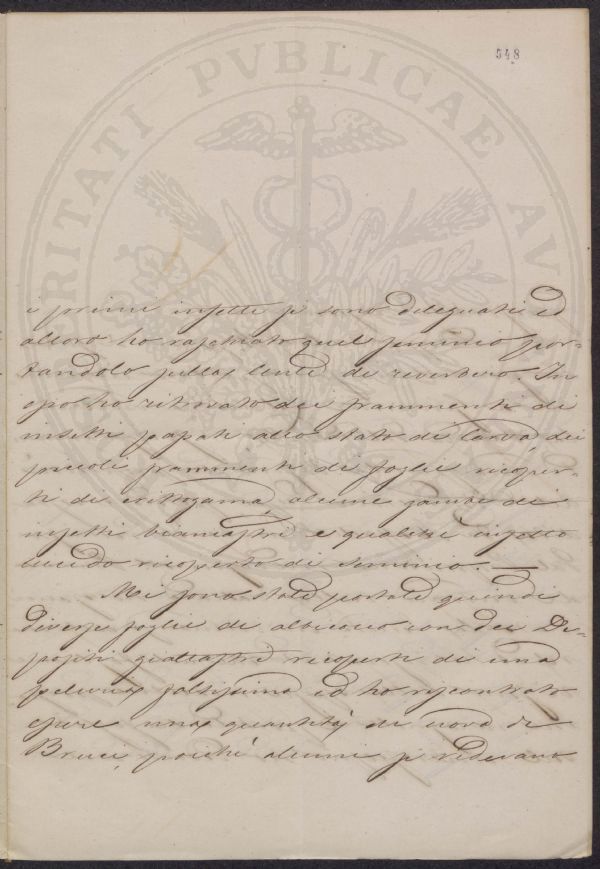 548
PROSPERITATI PVBLICAE AV
i primi insetti si sono dileguati ed
allora ho raschiato quel seminio por-
tandolo sulla lente di riverbero. In
esso ho ritrovato dei frammenti di
insetti passati allo stato di larva, dei
piccoli frammenti di foglie ricoper-
ti di crittogama, alcune zampe di
insetti biancastri e qualche insetto
lucido ricoperto di seminio. —
Mi sono state portate quindi
diverse foglie di albicocco con dei De-
positi giallastri ricoperti di una
peluria foltissima ed ho riscontrato
essere una quantità di uova di
Bruci, poiché alcuni si vedevano